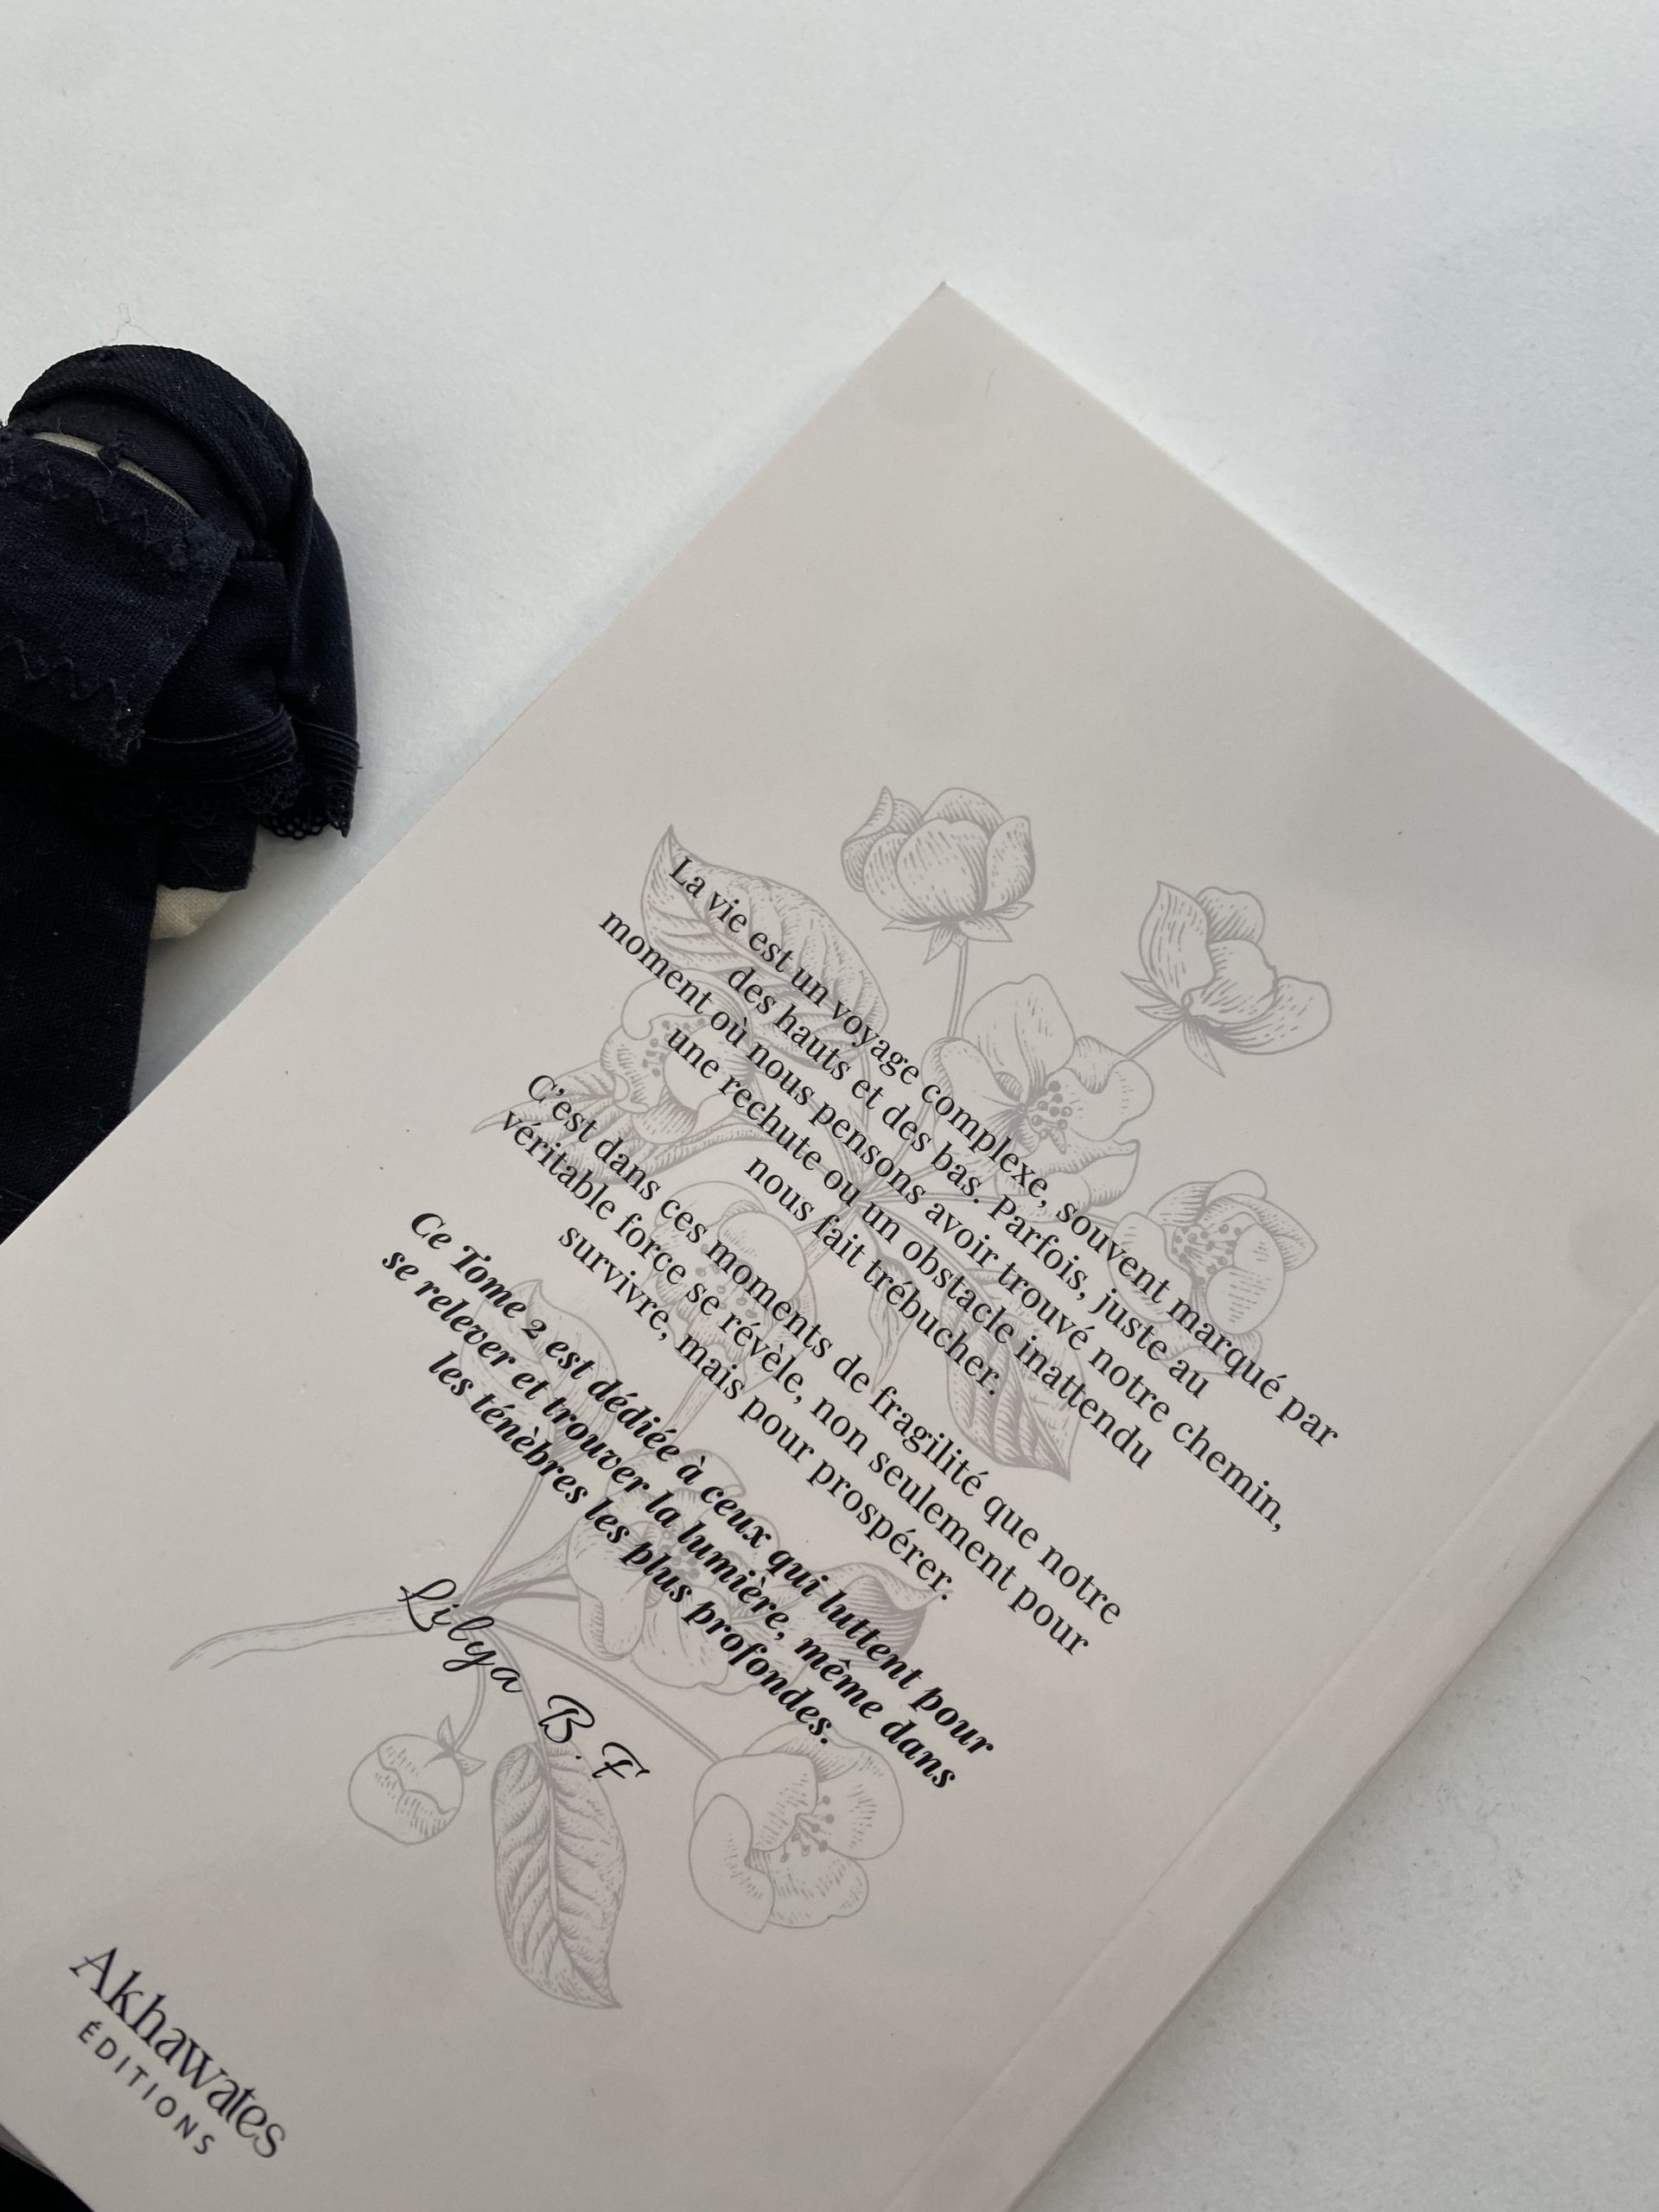 La vie est un voyage complexe, souvent marqué par
des hauts et des bas. Parfois, juste au
moment où nous pensons avoir trouvé notre chemin,
une rechute ou un obstacle inattendu
nous fait trébucher.
C'est dans ces moments de fragilité que notre
véritable force se révèle, non seulement pour
survivre, mais pour prospérer.
Ce Tome 2 est dédiée à ceux qui luttent pour
se relever et trouver la lumière, même dans
les ténèbres les plus profondes.
Lilya B. F
Akhawates
ÉDITIONS